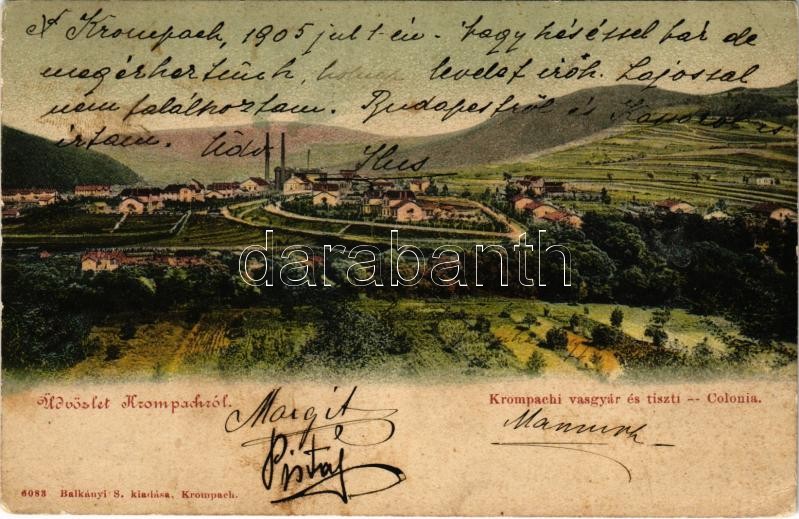 Krompach, 1905 jul 1-én. Nagy késéssel bár de
megérkeztünk, levelet irók. Lajossal
nem találkoztam. Budapestről és Kassáról is
irtam. Üdv
darabanth
Üdvözlet Krompachról.
Krompachi vasgyár és tiszti -- Colonia.
Margit
Pista
6083 Balkányi S. kiadása, Krompach.